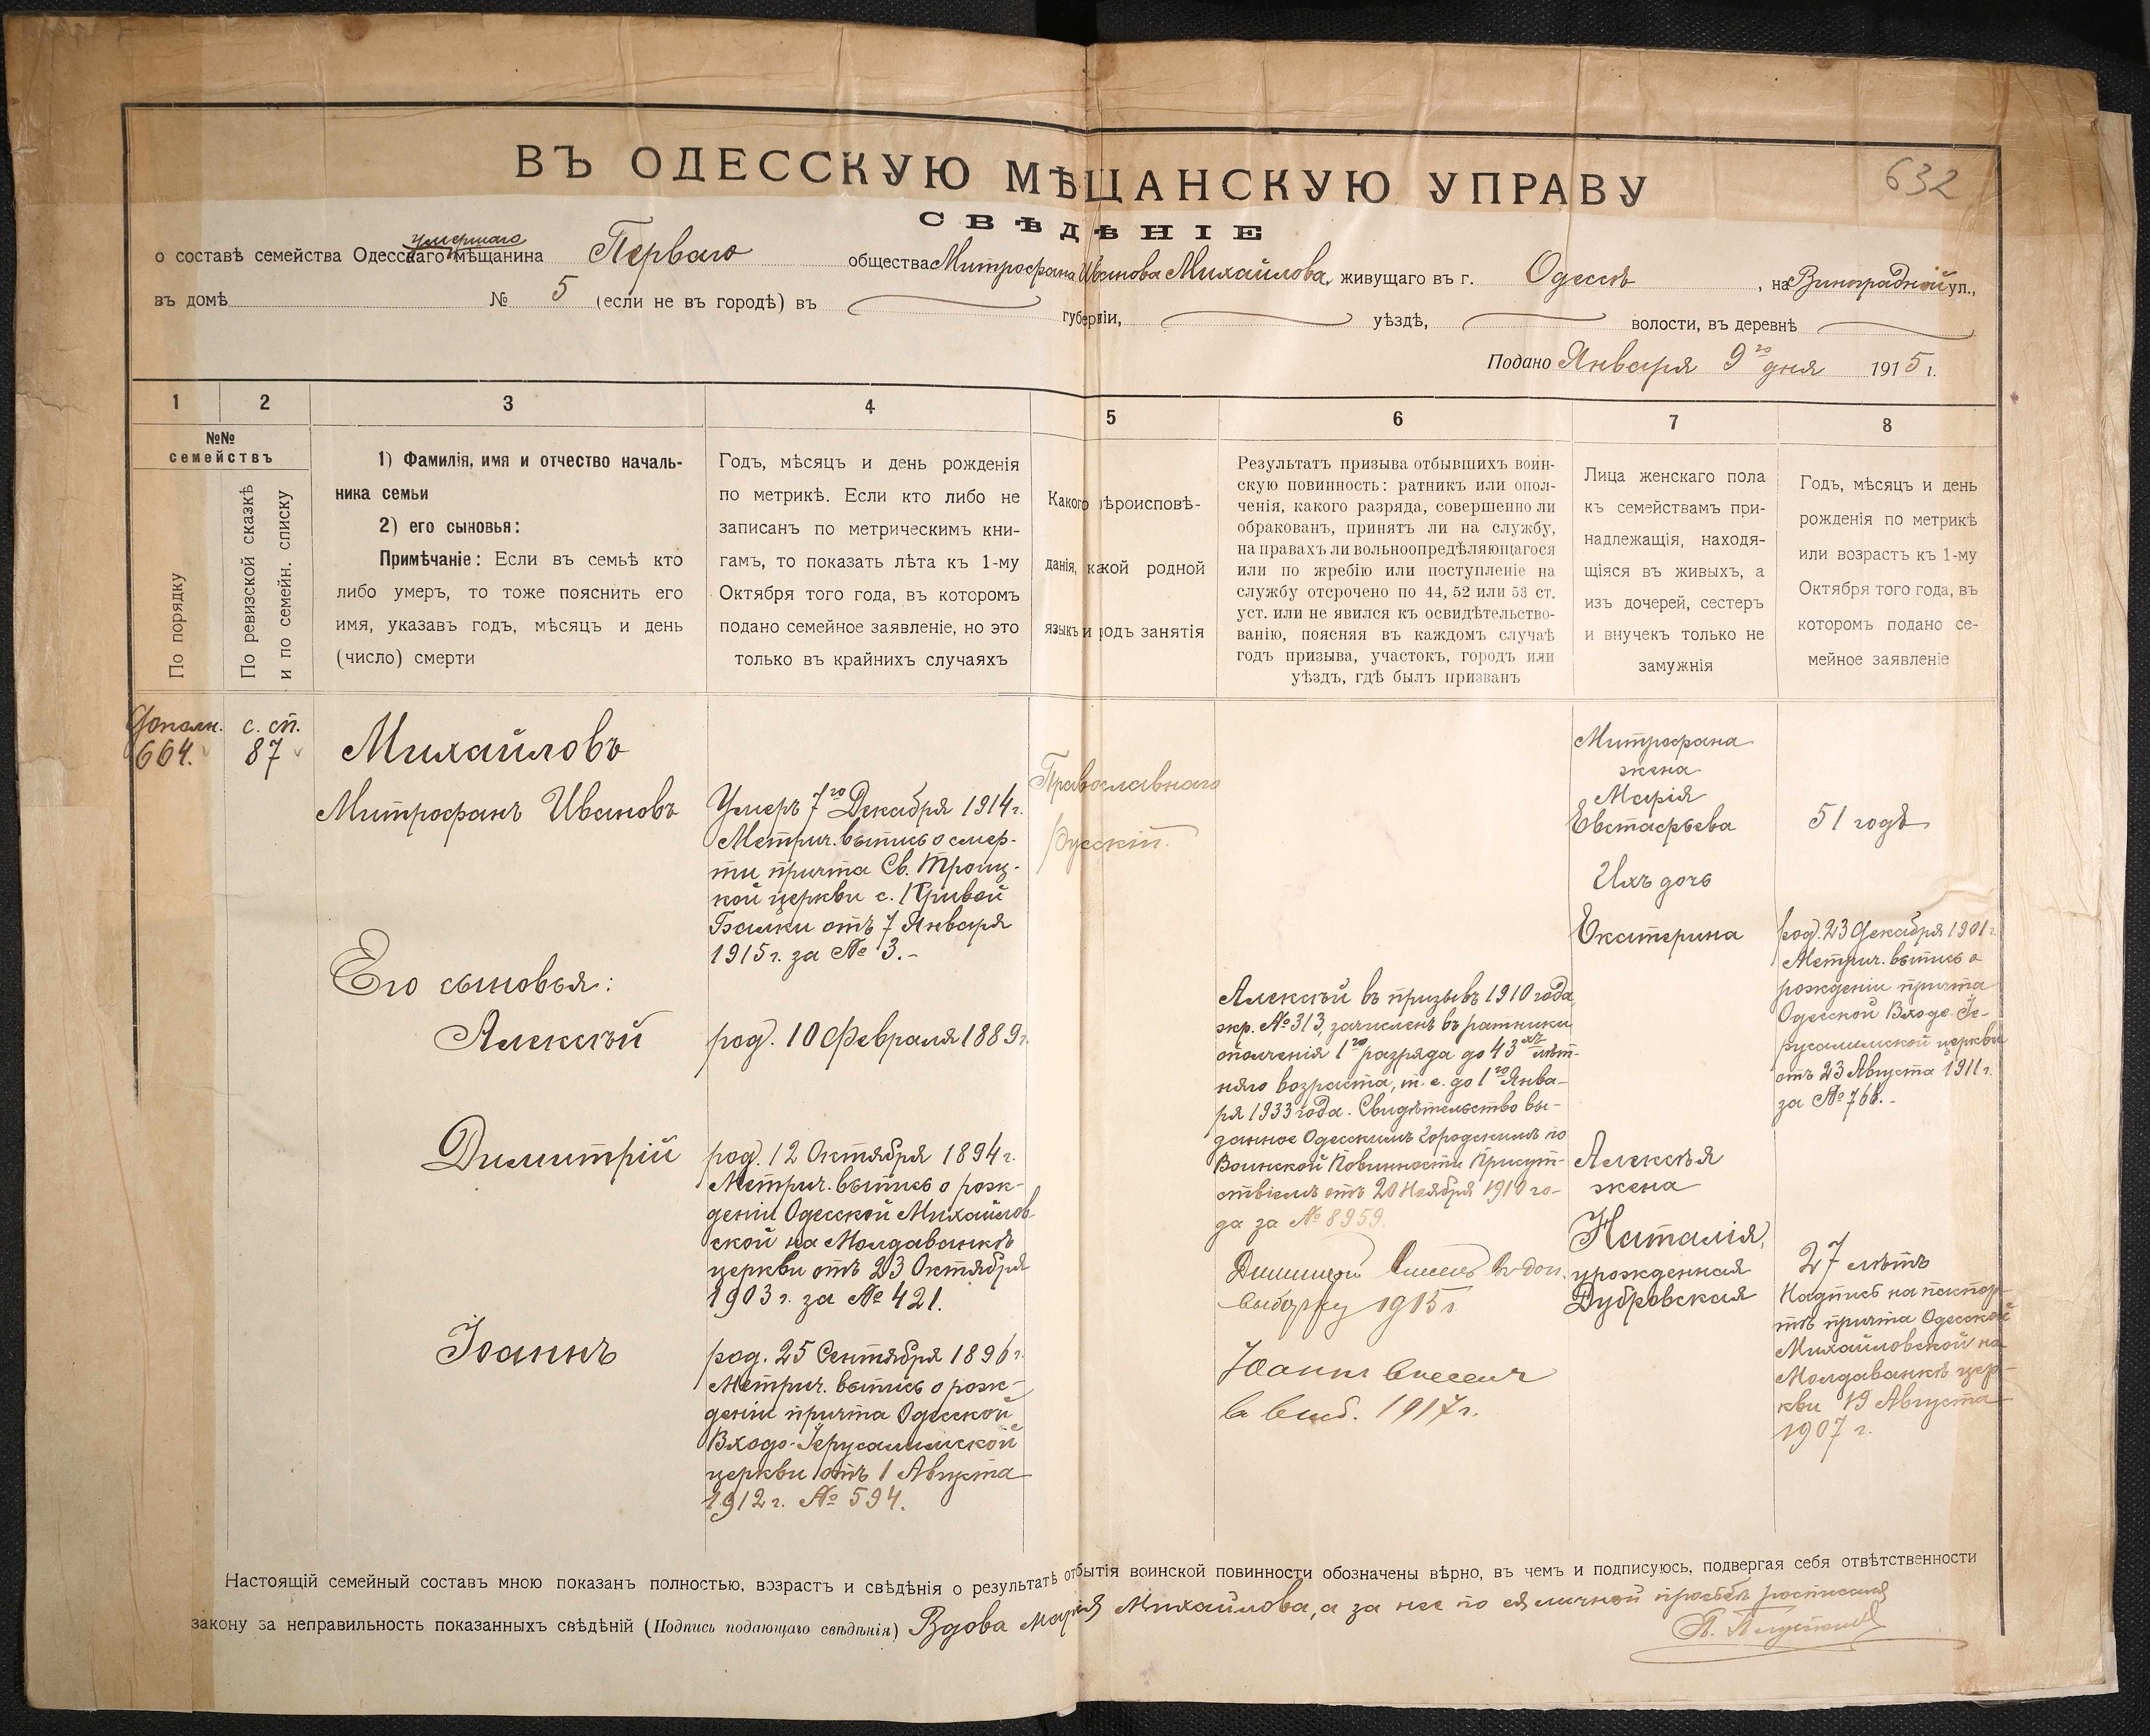 632
ВЪ ОДЕССКУЮ МѢЩАНСКУЮ УПРАВУ
СВѢДѢНІЕ
умершаго
о составѣ семейства Одесскаго мѣщанина Перваго общества Митрофана Иванова Михайлова, живущаго въ г. Одессѣ, на Виноградной ул.,
въ домѣ № 5 (если не въ городѣ) въ губерніи, уѣздѣ, волости, въ деревнѣ
Подано Января 9го дня 1915 г.
1
2
3
4
5
6
7
8
№№
семействъ
По порядку
По ревизской сказкѣ
и по семейн. списку
1) Фамилія, имя и отчество началь-
ника семьи
2) его сыновья:
Примѣчаніе: Если въ семьѣ кто
либо умеръ, то тоже пояснить его
имя, указавъ годъ, мѣсяцъ и день
(число) смерти
Годъ, мѣсяцъ и день рожденія
по метрикѣ. Если кто либо не
записанъ по метрическимъ кни-
гамъ, то показать лѣта къ 1-му
Октября того года, въ которомъ
подано семейное заявленіе, но это
только въ крайнихъ случаяхъ
Какого вѣроисповѣ-
данія, какой родной
языкъ и родъ занятія
Результатъ призыва отбывшихъ воин-
скую повинность: ратникъ или опол-
ченія, какого разряда, совершенно ли
обракованъ, принятъ ли на службу,
на правахъ ли вольноопредѣляющагося
или по жребію или поступленіе на
службу отсрочено по 44, 52 или 53 ст.
уст. или не явился къ освидѣтельство-
ванію, поясняя въ каждомъ случаѣ
годъ призыва, участокъ, городъ или
уѣздъ, гдѣ былъ призванъ
Лица женскаго пола
къ семействамъ при-
надлежащія, находя-
щіяся въ живыхъ, а
изъ дочерей, сестеръ
и внучекъ только не
замужнія
Годъ, мѣсяцъ и день
рожденія по метрикѣ
или возрастъ къ 1-му
Октября того года, въ
которомъ подано се-
мейное заявленіе
Дополн.
664.
с. сп.
87
Михайловъ
Митрофанъ Ивановъ
Его сыновья:
Алексѣй
Димитрій
Іоаннъ
Умеръ 7го Декабря 1914 г.
Метрич. выпись о смер-
ти причта Св. Троиц-
кой церкви с. Кривой
Балки отъ 7 Января
1915 г. за № 3.-
род. 10 Февраля 1889 г.
род. 12 Октября 1894 г.
Метрич. выпись о рож-
деніи Одесской Михайлов
ской на Молдаванкѣ
церкви отъ 23 Октября
1903 г. за № 421.
род. 25 Сентября 1896 г.
Метрич. выпись о рож-
деніи причта Одесской
Входо-Іерусалимской
церкви отъ 1 Августа
1912 г. № 594.
Православнаго
русскій.
Алексѣй въ призывъ 1910 года,
жр. № 313, зачисленъ въ ратники
ополченія 1го разряда до 43хъ лѣт-
няго возраста, т. е. до 1го Янва-
ря 1933 года. Свидѣтельство вы-
данное Одесскимъ Городскимъ по
Воинской Повинности Присут-
ствіемъ отъ 20 Ноября 1910 го-
да за № 8959.
Димитрій внесенъ въ доп.
выборку 1915 г.
Іоаннъ внесенъ
въ выб. 1917 г.
Митрофана
жена
Марія
Евстафьева
Ихъ дочь
Екатерина
Алексѣя
жена
Наталія,
урожденная
Дубровская
51 годъ
род. 23 Декабря 1901 г.
Метрич. выпись о
рожденіи причта
Одесской Входо-Іе-
русалимской церкви
отъ 23 Августа 1911 г.
за № 766.-
27 лѣтъ
Надпись на паспор-
тѣ причта Одесской
Михайловской на
Молдаванкѣ цер-
кви 19 Августа
1907 г.
Настоящій семейный составъ мною показанъ полностью, возрастъ и свѣдѣнія о результатѣ отбытія воинской повинности обозначены вѣрно, въ чемъ и подписуюсь, подвергая себя отвѣтственности
закону за неправильность показанныхъ свѣдѣній (Подпись подающаго свѣдѣнія) Вдова Марія Михайлова, а за нее по ея личной просьбѣ росписался